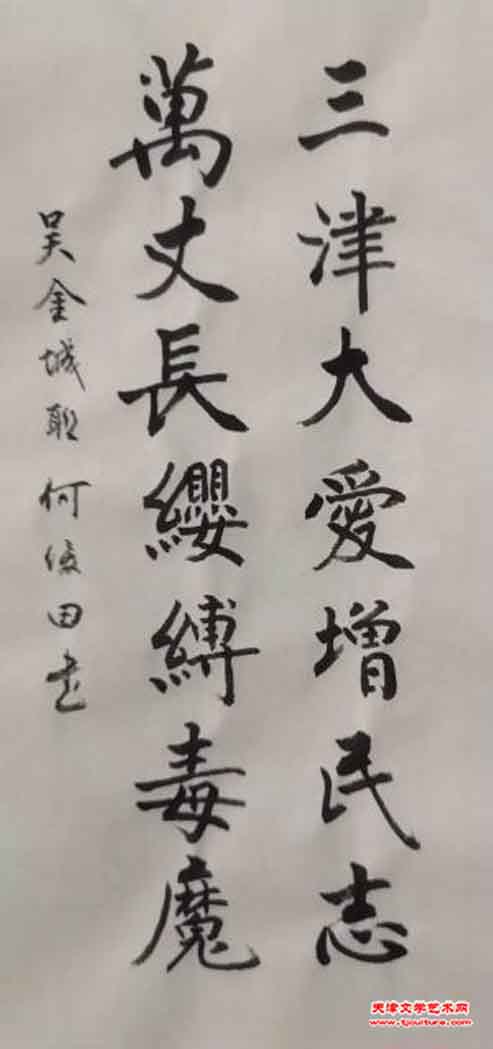 三津大愛增民志
萬丈長纓縛毒魔
吴金城联 何俊田书
天津文学艺术网
www.tjculture.com